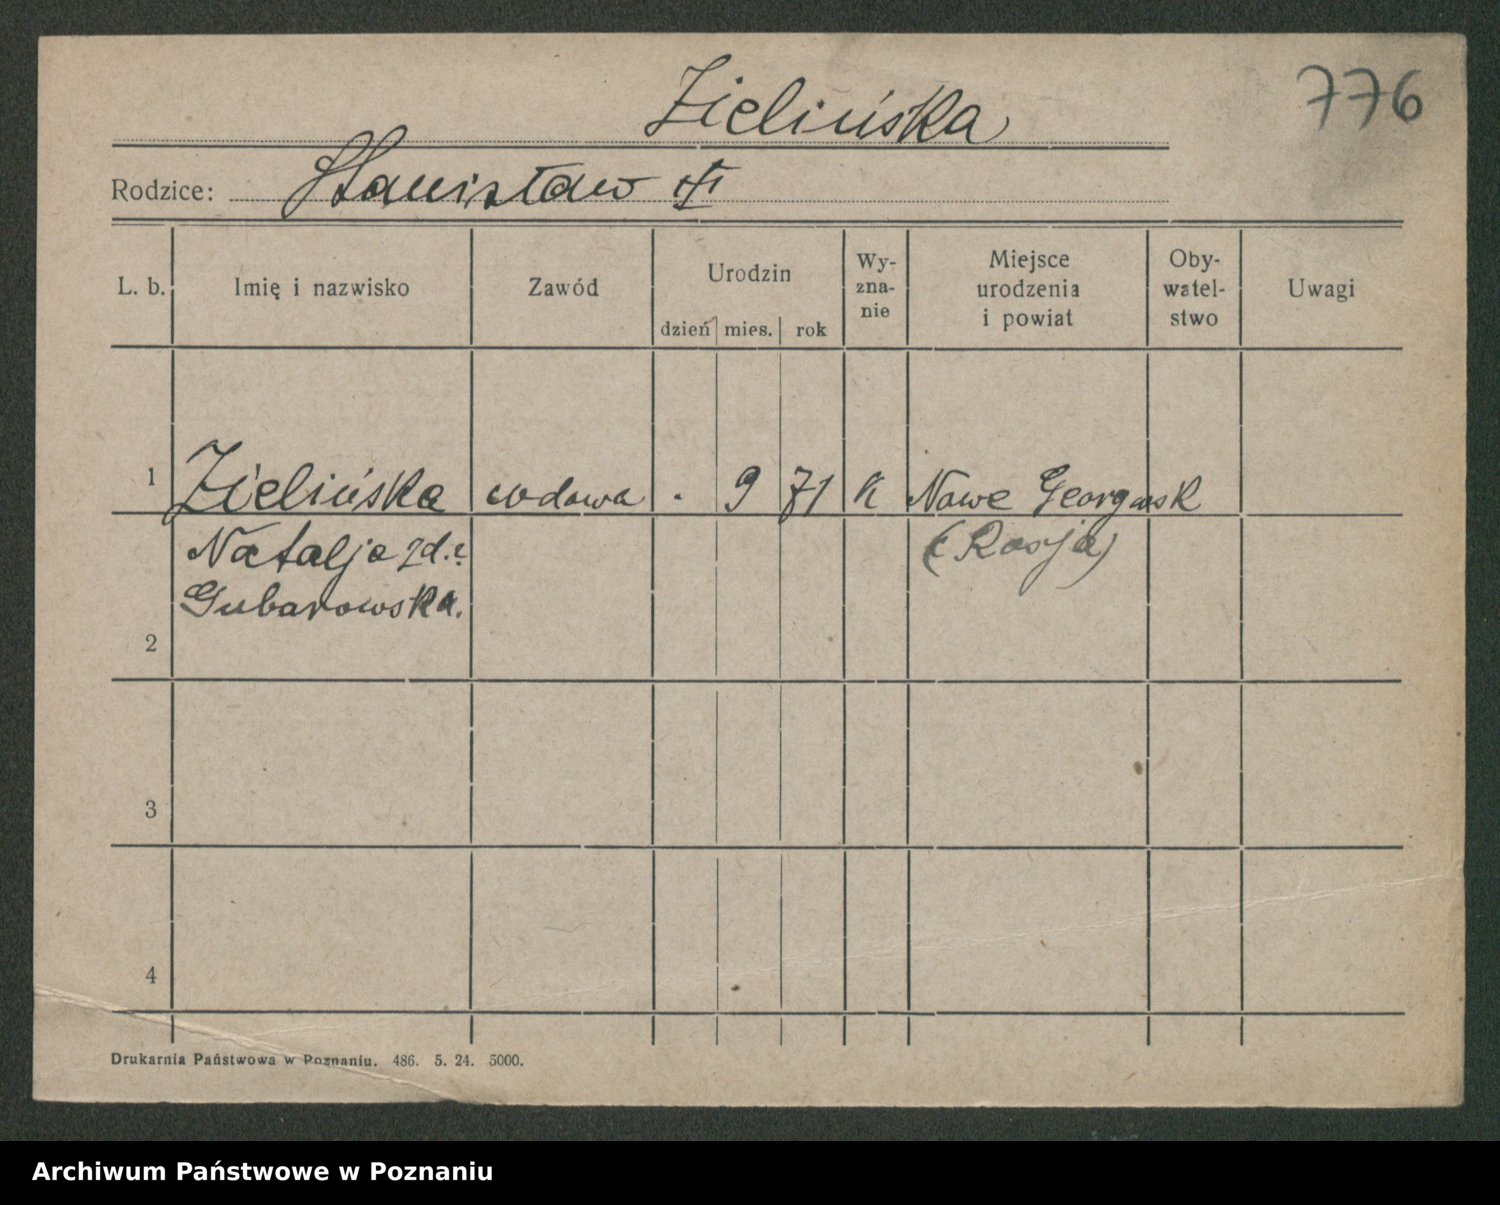 776
Zielińska
Rodzice: Stanisław
L. b. Imię i nazwisko Zawód Urodzin Wy-zna-nie Miejsce urodzenia i powiat Oby-watel-stwo Uwagi
dzień mies. rok
1 Zielińska wdowa . 9 71 k Nowe Georgewsk
Natalja zd.
(Rosja)
Gubarowska.
2
3
4
Drukarnia Państwowa w Poznaniu. 486. 5. 24. 5000.
Archiwum Państwowe w Poznaniu